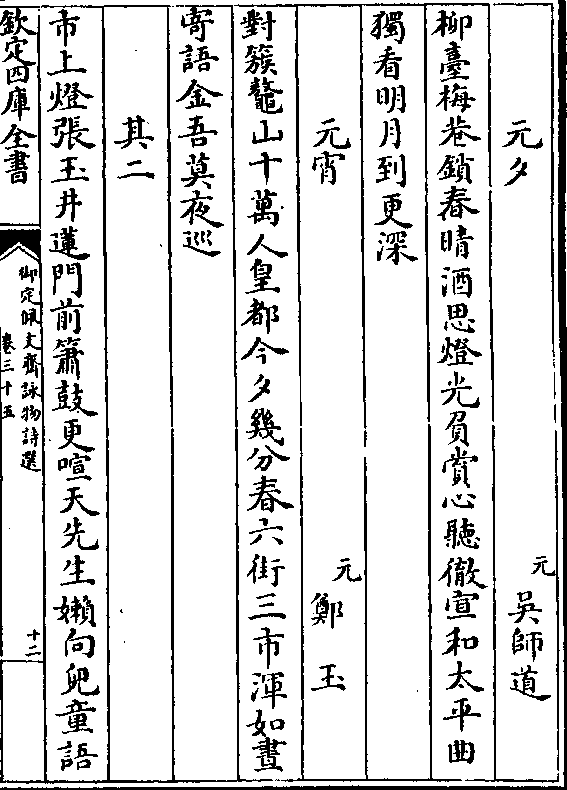 元夕
元　吳師道
柳臺梅巷鎖春晴酒思燈光負賞心聽徹宣和太平曲
獨看明月到更深
元宵
元　鄭玉
對簇鼇山十萬人皇都今夕幾分春六街三市渾如晝
寄語金吾莫夜巡
其二
市上燈張玉井蓮門前簫鼓更喧天先生嬾向兒童語
欽定四庫全書
御定佩文齋詠物詩選
卷三十五
十二